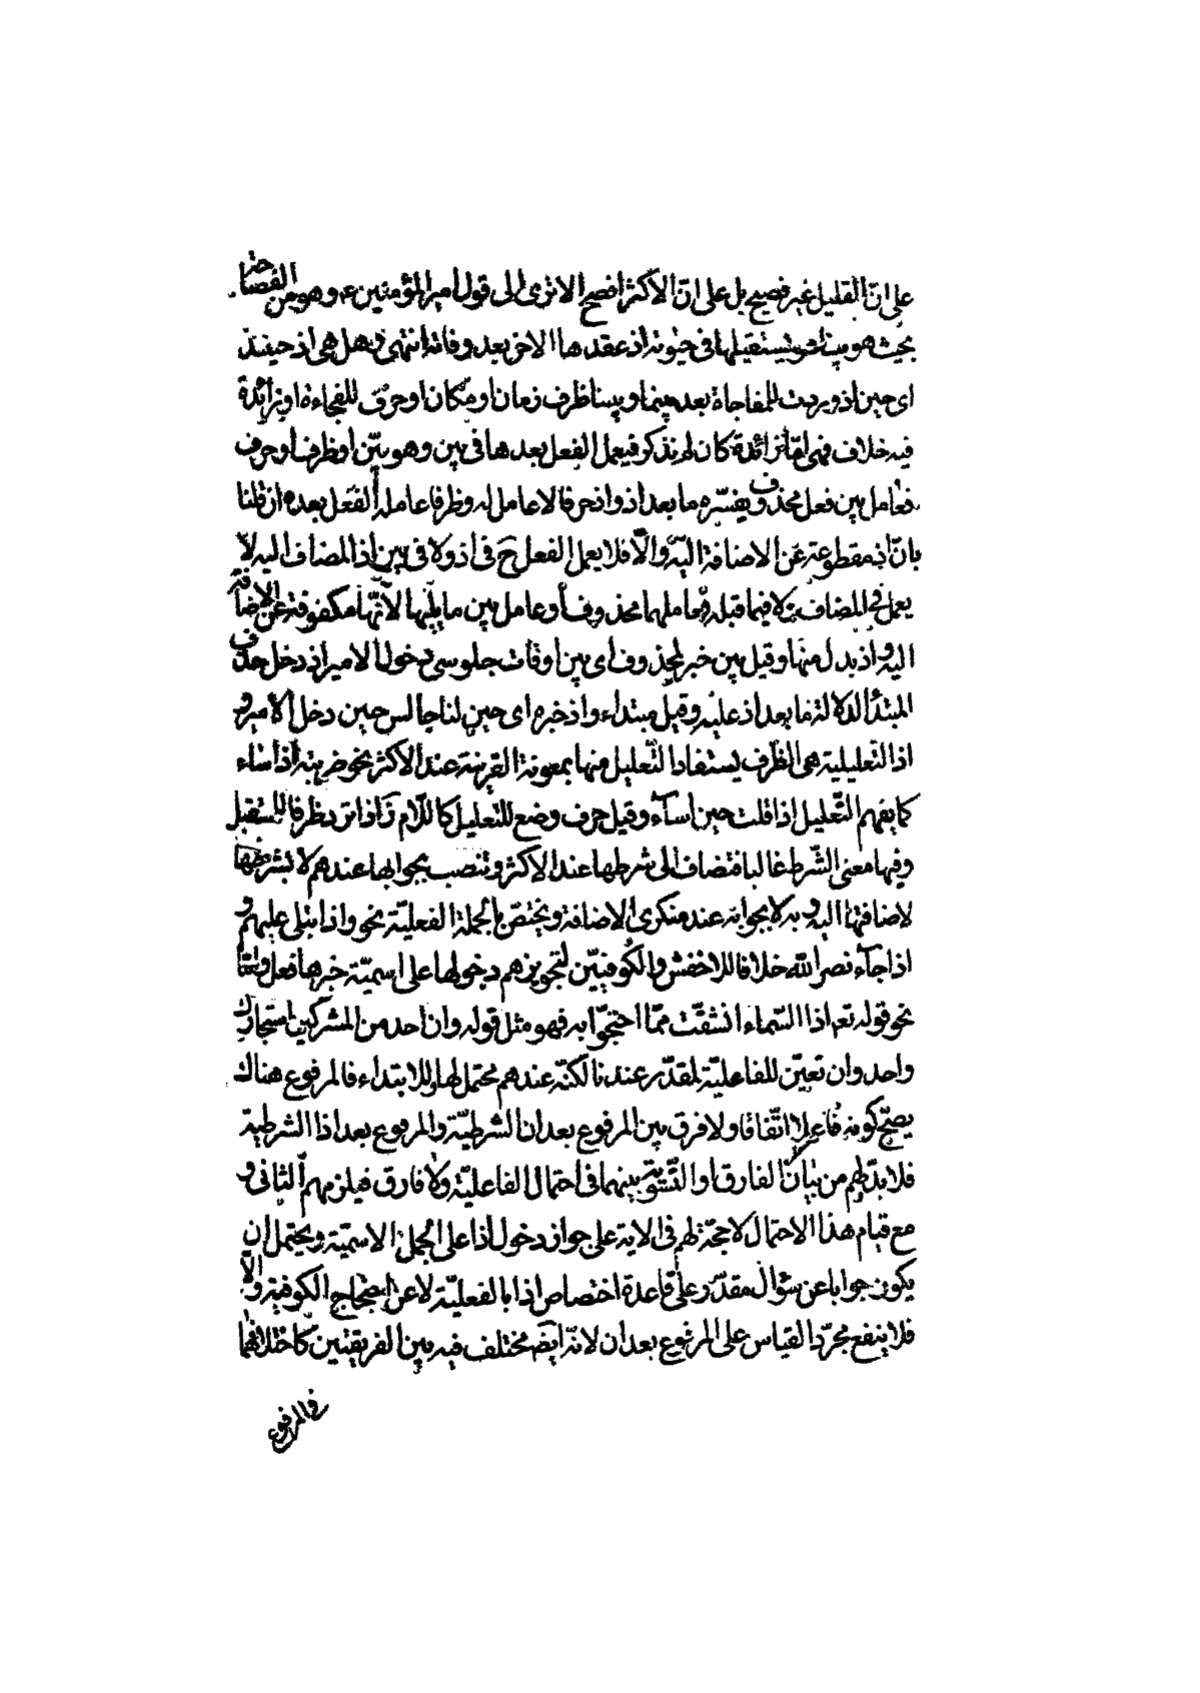 على انّ القليل غير فصيح بل على انّ الاكثر افصح الا ترى الى قول امير المؤمنين ع وهو من الفصاحة
بحيث هو بينا هو يستقيلها فى حيوته اذ عقدها الاخر بعد وفاته انتهى وهل هى اذ حينئذ
اى حين اذ وردت للمفاجاة بعد بينما وبينا ظرف زمان او مكان او حرف للفجاءة او زائدة
فيه خلاف فهى امّا زائدة كان لم تذكر فيعمل الفعل بعدها فى بين وهو بيّن او ظرف او حرف
فعامل بين فعل محذوف يفسّره ما بعد اذ واذ حرفا لا عامل له وظرفا عامله الفعل بعده ان قلنا
بانّ اذ مقطوعة عن الاضافة اليه والّا فلا يعمل الفعل ح فى اذ ولا فى بين اذ المضاف اليه لا
يعمل فى المضاف ولا فيما قبله فعاملهما محذوف او عامل بين ما يليها لانّها مكفوفة عن الاضافة
اليه واذ بدل منها وقيل بين خبر لمحذوف اى بين اوقات جلوسى دخول الامير اذ دخل حذف
المبتدأ لدلالة ما بعد اذ عليه وقيل مبتداء واذ خبره اى حين لنا جالس حين دخل الامير و
اذ التعليلية هى الظرف يستفاد التّعليل منها بمعونة القرينة عند الاكثر نحو ضربته اذ اساء
كما يفهم التّعليل اذا قلت حين اسآء وقيل حرف وضع للتعليل كاللّام واذا ترد ظرفا للمستقبل
وفيها معنى الشّرط غالبا فتضاف الى شرطها عند الاكثر وتنصب بجوابها عندهم لا بشرطها
لاضافتها اليه وبه لا بجوابه عند منكرى الاضافة ويختصّ بالجملة الفعليّة نحو واذا يتلى عليهم و
اذا جآء نصر الله خلافا للاخفش والكوفيّين لتجويزهم دخولها على اسميّة خبرها فعل وامّا
نحو قوله تعم اذا السّماء انشقّت ممّا احتجّوا به فهو مثل قوله وان احد من المشركين استجارك
واحد وان تعيّن للفاعليّة لمقدّر عندنا لكنّه عندهم محتمل لها وللابتداء فالمرفوع هناك
يصحّ كونه فاعلا اتّفاقا ولا فرق بين المرفوع بعد ان الشرطيّة والمرفوع بعد اذا الشرطية
فلا بدّ لهم من بيان الفارق او التّسوية بينهما فى احتمال الفاعليّة ولا فارق فيلزمهم الثانى و
مع قيام هذا الاحتمال لا حجّة لهم فى الاية على جواز دخول اذا على الجملة الاسميّة ويحتمل ان
يكون جوابا عن سؤال مقدّر على قاعدة اختصاص اذا بالفعليّة لا عن احتجاج الكوفية والّا
فلا ينفع مجرّد القياس على المرفوع بعد ان لانّه ايضا مختلف فيه بين الفريقين كاختلافهما
فى المرفوع